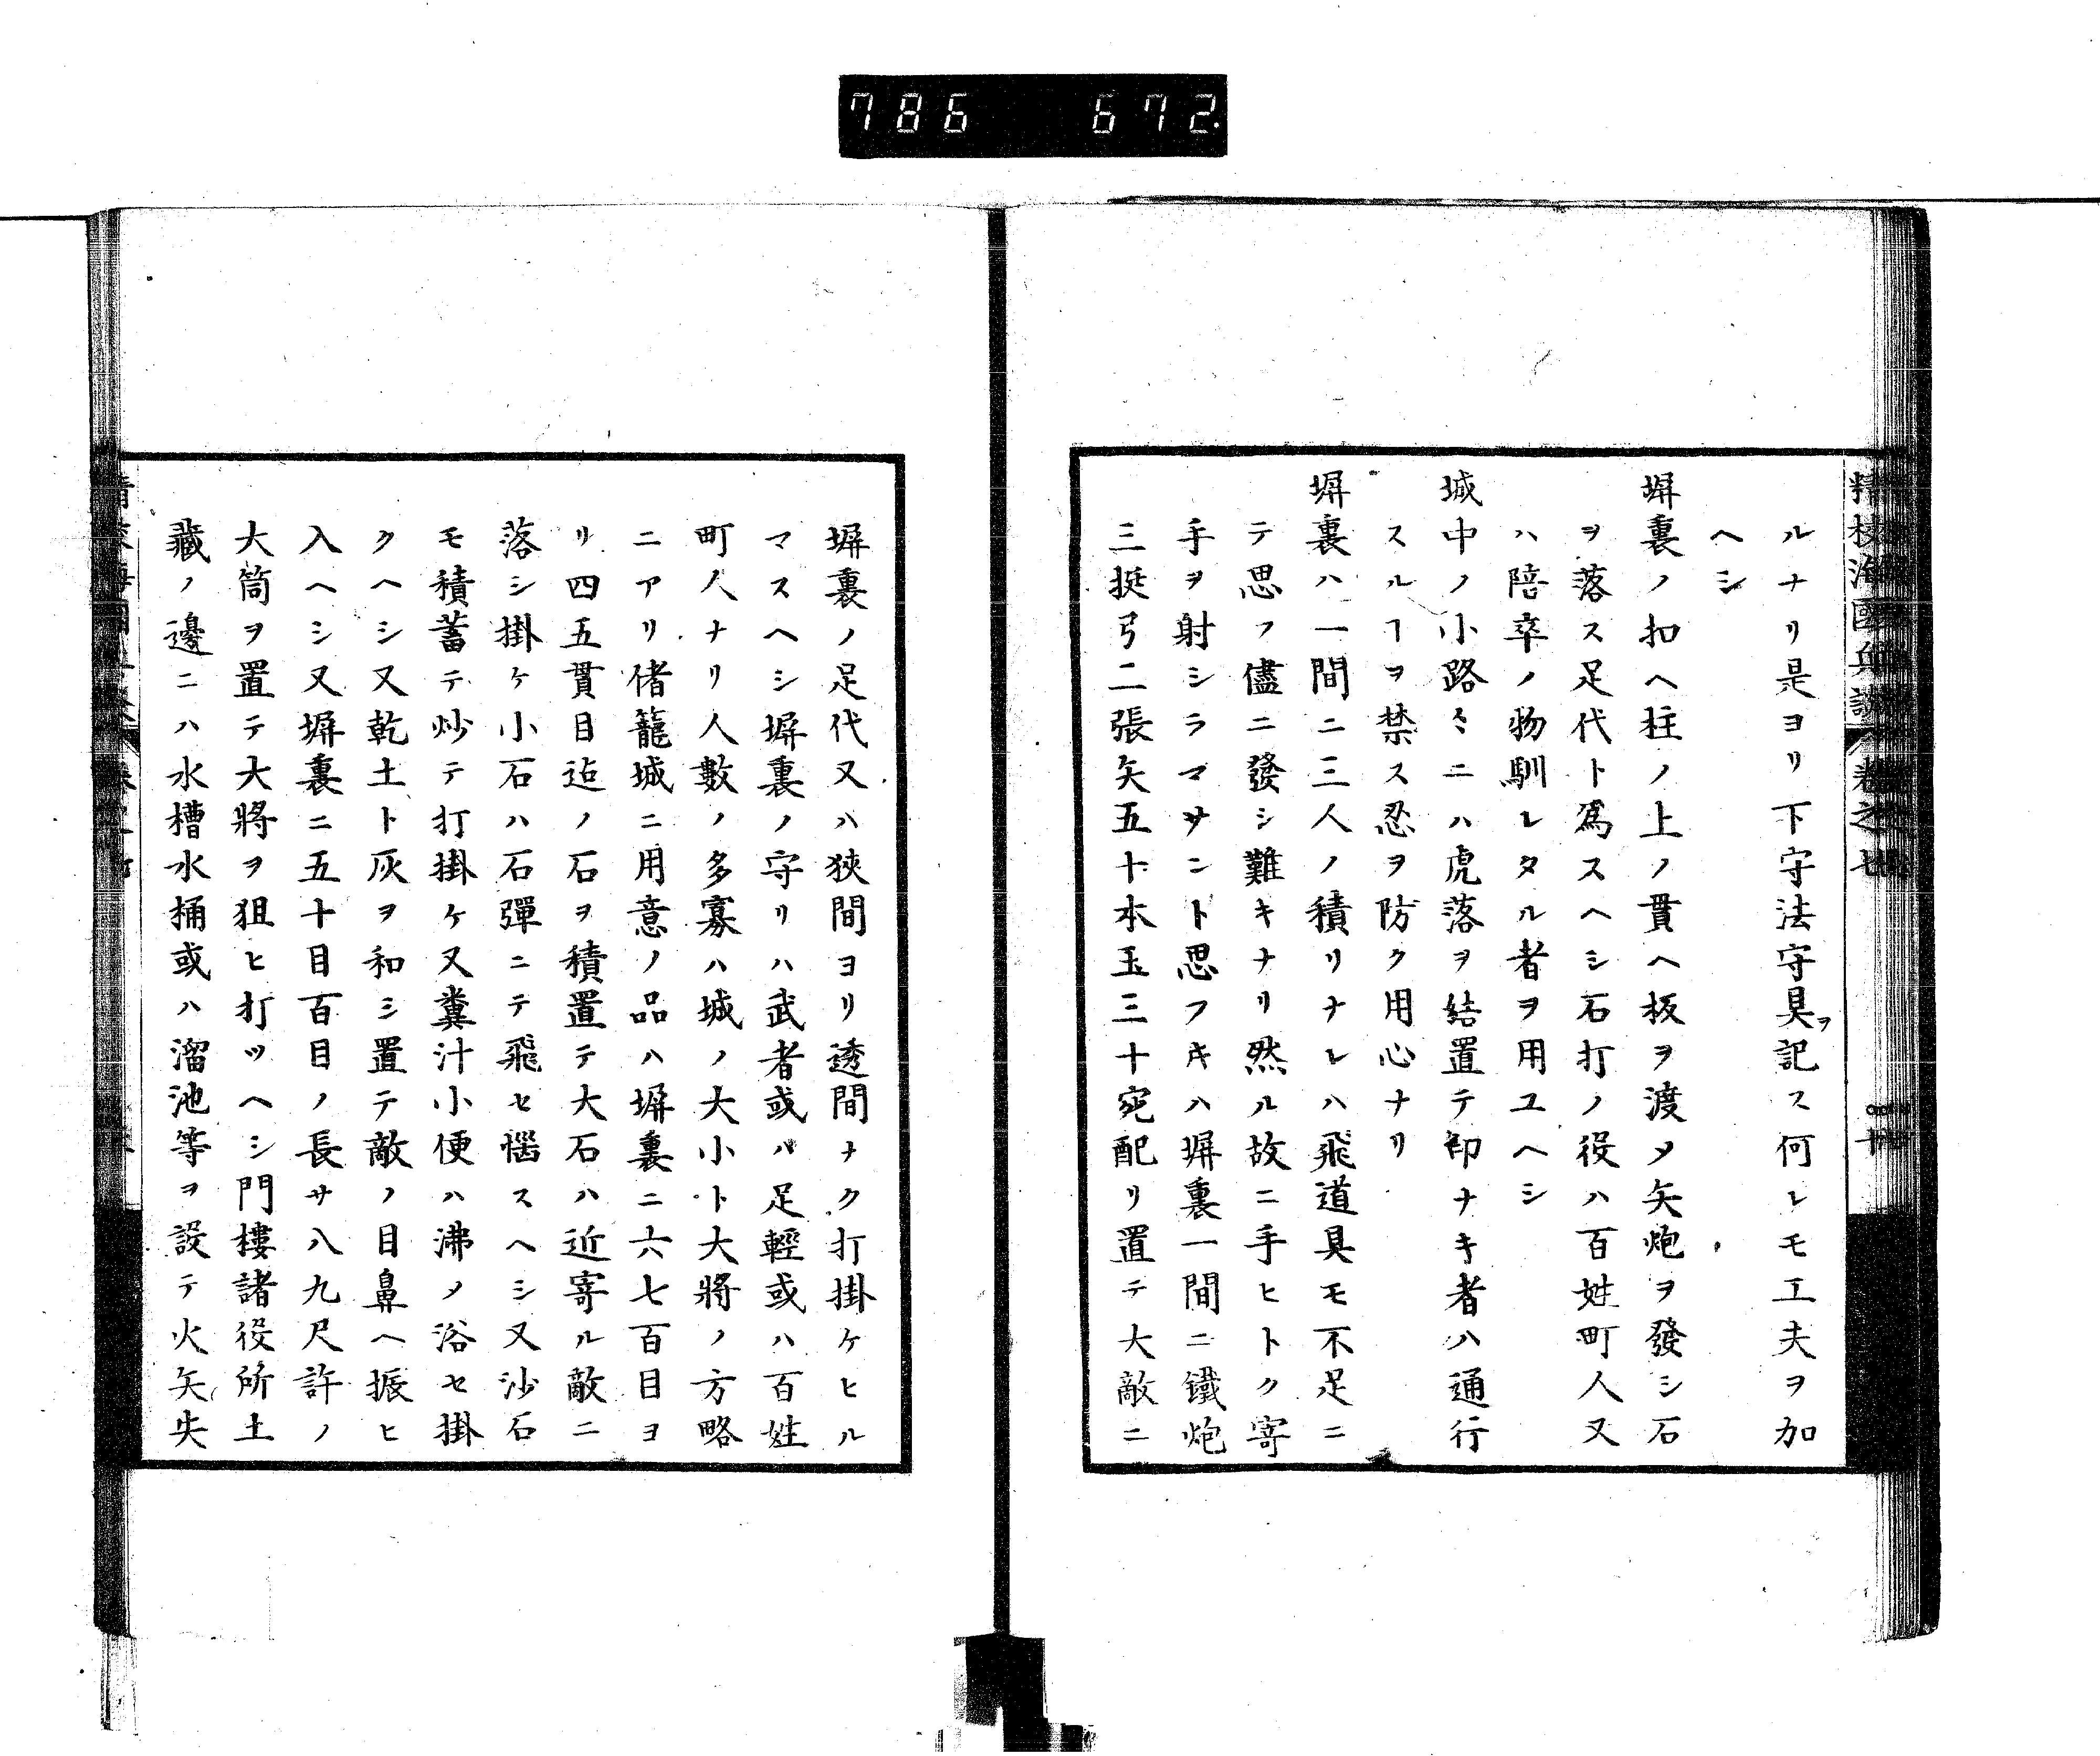 786 672
精校海國兵談 卷之七 十
ルナリ是ヨリ下守法守具ヲ記ス何レモ工夫ヲ加
ヘシ
塀裏ノ扣ヘ柱ノ上ノ貫ヘ板ヲ渡メ矢炮ヲ發シ石
ヲ落ス足代ト爲スヘシ石打ノ役ハ百姓町人又
ハ陪卒ノ物馴レタル者ヲ用ユヘシ
城中ノ小路々ニハ虎落ヲ結置テ印ナキ者ハ通行
スルヿヲ禁ス忍ヲ防ク用心ナリ
塀裏ハ一間ニ三人ノ積リナレハ飛道具モ不足ニ
テ思フ儘ニ發シ難キナリ然ル故ニ手ヒトク寄
手ヲ射シラマサント思フキハ塀裏一間ニ鐵炮
三挺弓二張矢五十本玉三十宛配リ置テ大敵ニ
塀裏ノ足代又ハ狹間ヨリ透間ナク打掛ケヒル
マスヘシ塀裏ノ守リハ武者或ハ足輕或ハ百姓
町人ナリ人數ノ多寡ハ城ノ大小ト大將ノ方略
ニアリ偖籠城ニ用意ノ品ハ塀裏ニ六七百目ヨ
リ四五貫目迠ノ石ヲ積置テ大石ハ近寄ル敵ニ
落シ掛ケ小石ハ石彈ニテ飛セ惱スヘシ又沙石
モ積蓄テ炒テ打掛ケ又糞汁小便ハ沸メ浴セ掛
クヘシ又乾土ト灰ヲ和シ置テ敵ノ目鼻ヘ振ヒ
入ヘシ又塀裏ニ五十目百目ノ長サ八九尺許ノ
大筒ヲ置テ大將ヲ狙ヒ打ツヘシ門樓諸役所土
藏ノ邊ニハ水槽水桶或ハ溜池等ヲ設テ火矢失